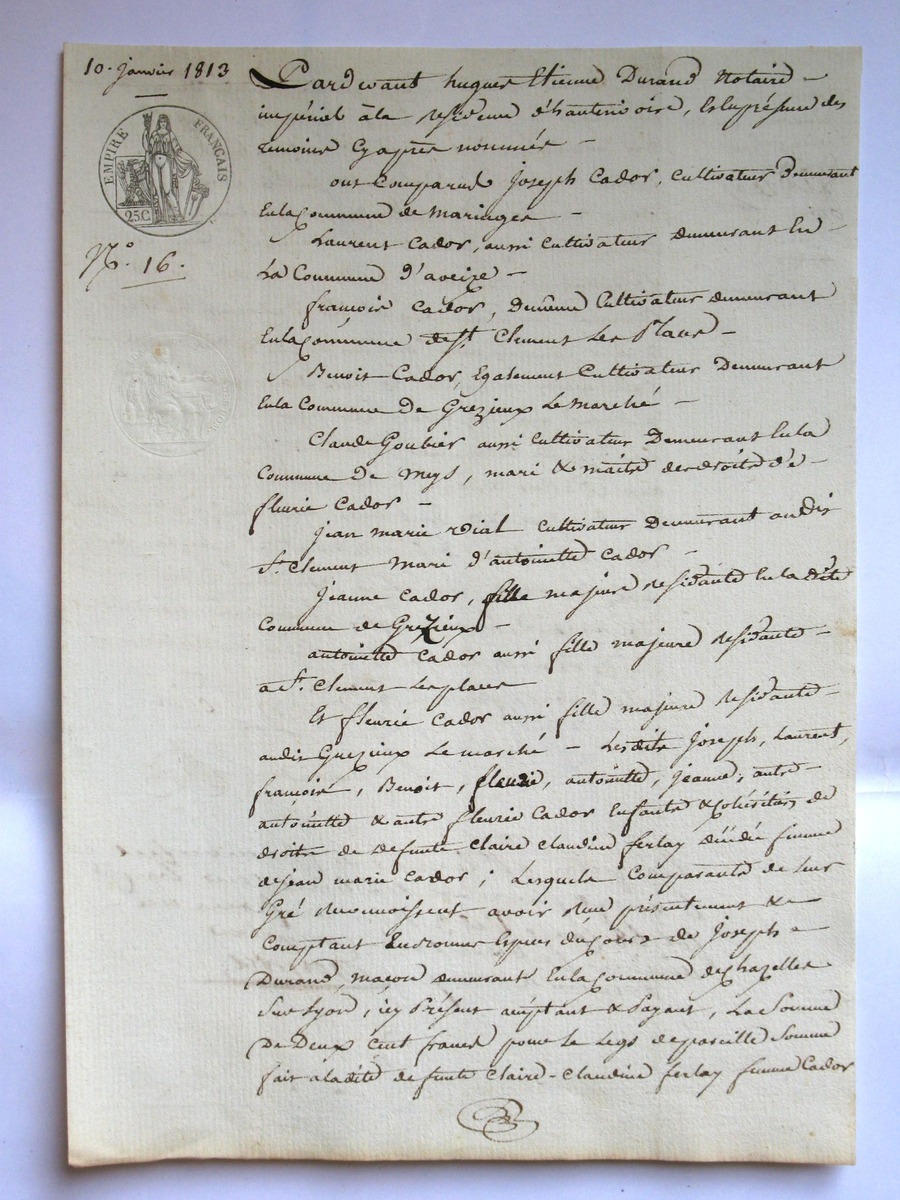 10. janvier 1813
EMPIRE FRANÇAIS
25C
N.° 16.
Pardevant hugues Etienne Durand Notaire
impérial à la residence d'hauterivoire, En la présence des
temoins Cy après nommés
ont Comparus Joseph Cador, Cultivateur Demeurant
En la Commune de Maringes
Laurent Cador, aussi Cultivateur demeurant En
La Commune d'aveize
françois Cador, De même Cultivateur demeurant
En la Commune de St. Clement Les Places
Benoit Cador, Egalement Cultivateur Demeurant
En la Commune De Grézieux Le Marché
Claude Goubier aussi Cultivateur Demeurant En la
Commune De meys, mari & maitre des droits d'e
fleurie Cador
jean marie Vial Cultivateur Demeurant audit
St. Clement Mari d'antoinette Cador
jeanne Cador, fille majeure residante En la dite
Commune de Grezieux
antoinette Cador aussi fille majeure residante
a St. Clement Les places
Et fleurie Cador aussi fille majeure residante
audit Grezieux Le marché Lesdits Joseph, Laurent,
françois, Benoit, fleurie, antoinette, jeanne, autre
antoinette & autre fleurie Cador Enfants & héritiers de
droits de defunte Claire Claudine ferlay décédée femme
de jean marie Cador; Lesquels Comparants de leur
Gré reconnoissent avoir reçu présentement &
Comptant En bonnes Espèces du Cours de Joseph
Durand, maçon demeurant En la Commune de Chazelles
Sur Lyon, icy Présent acceptant & Payant, La Somme
De Deux Cent francs pour le Legs de pareille Somme
fait a la dite defunte Claire-Claudine ferlay femme Cador